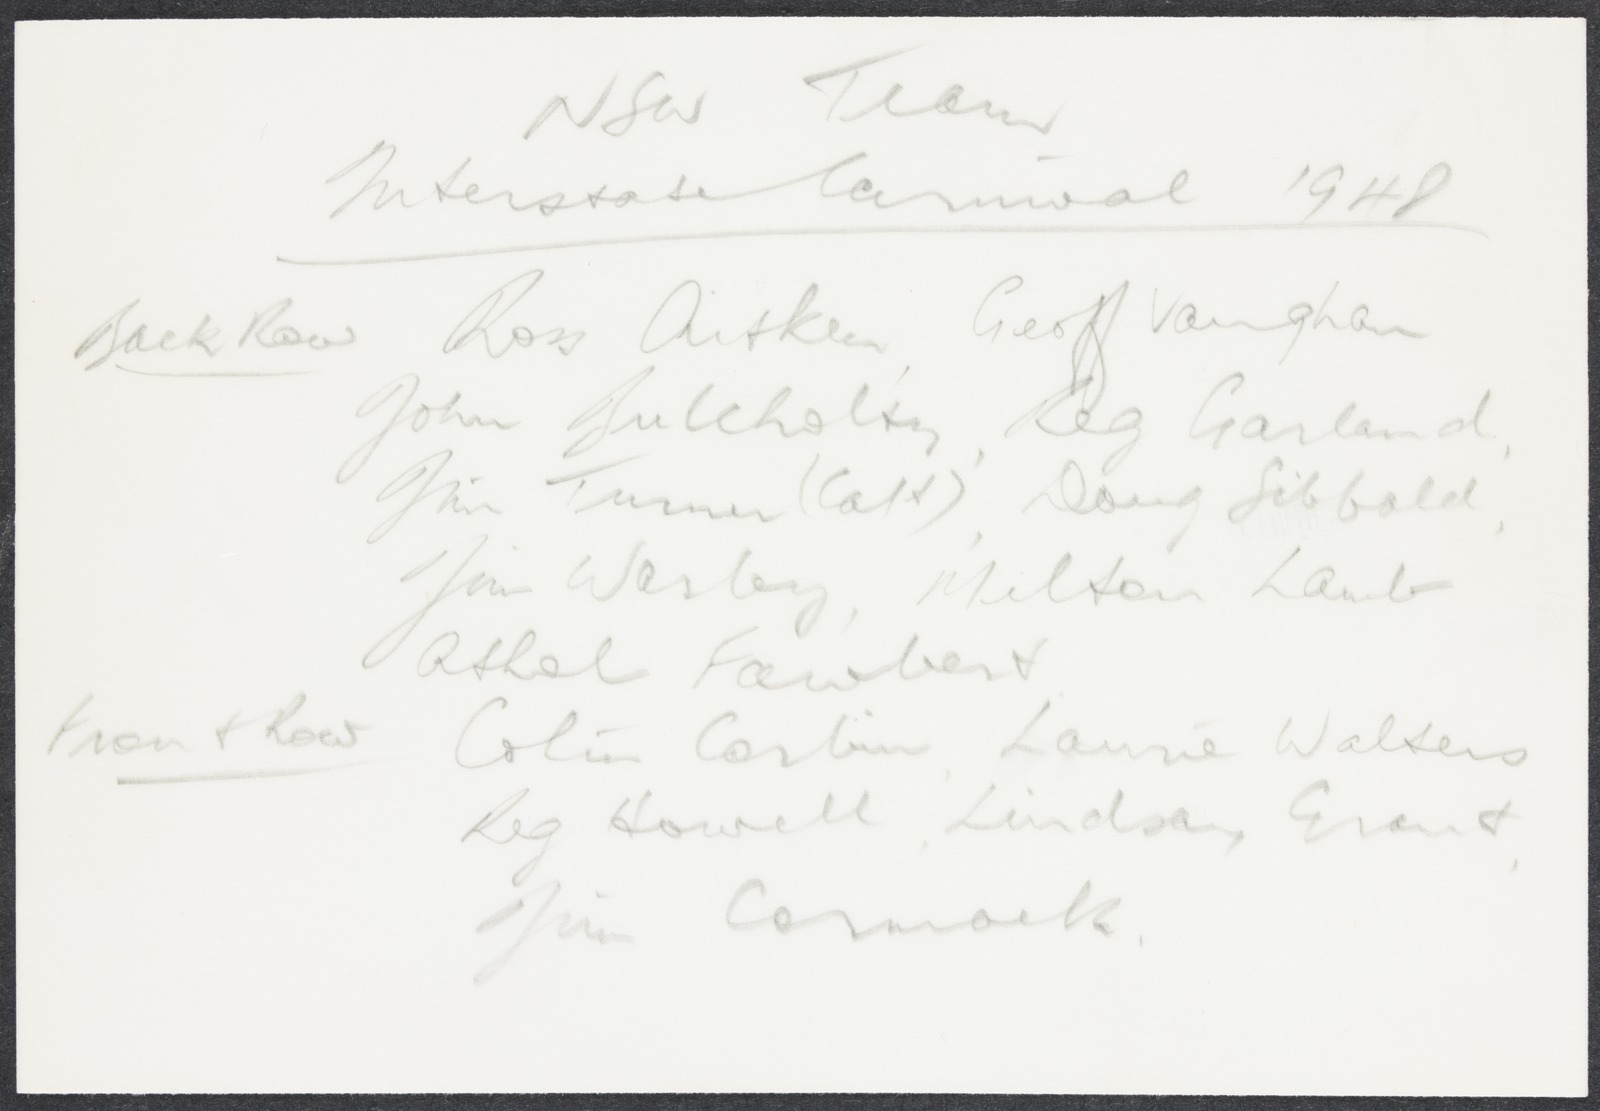 NSW Team
Interstate Carnival 1948
Back Row Ross Aitken, Geoff Vaughan
John Bulcholtz, Reg Garland,
Jim Turner (Capt), Doug Sibbald,
Jim Warby, Milton Lamb
Athol Fawbert
Front Row Colin Corbin, Laurie Walters
Reg Howell, Lindsay Grant,
Jim Cormack.